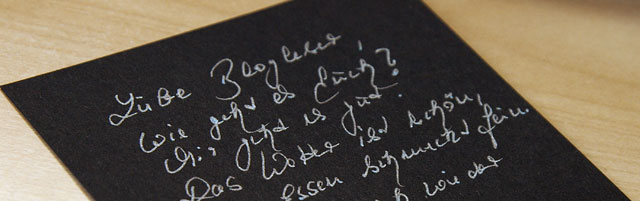 Liebe Blogleser
wie geht es Euch?
Mir geht es gut.
Das Wetter ist schön,
Essen schmeckt fein.
wieder